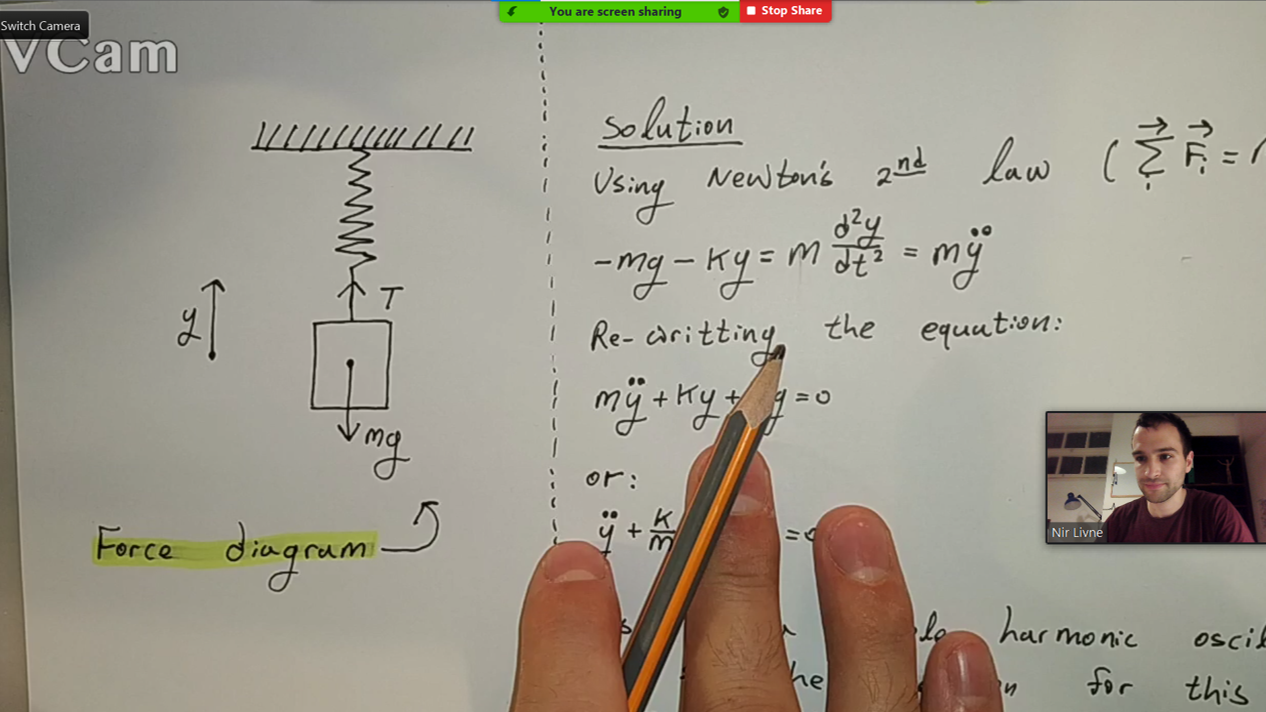 Switch Camera
You are screen sharing
Stop Share
VCam
y
T
mg
Force diagram
Solution
Using Newton's 2nd law ( ∑ᵢ F⃗ᵢ =
-mg - Ky = m d²y/dt² = mÿ
Re-writting the equation:
mÿ + Ky + g = 0
or:
ÿ + K/m = 0
harmonic
for this
Nir Livne